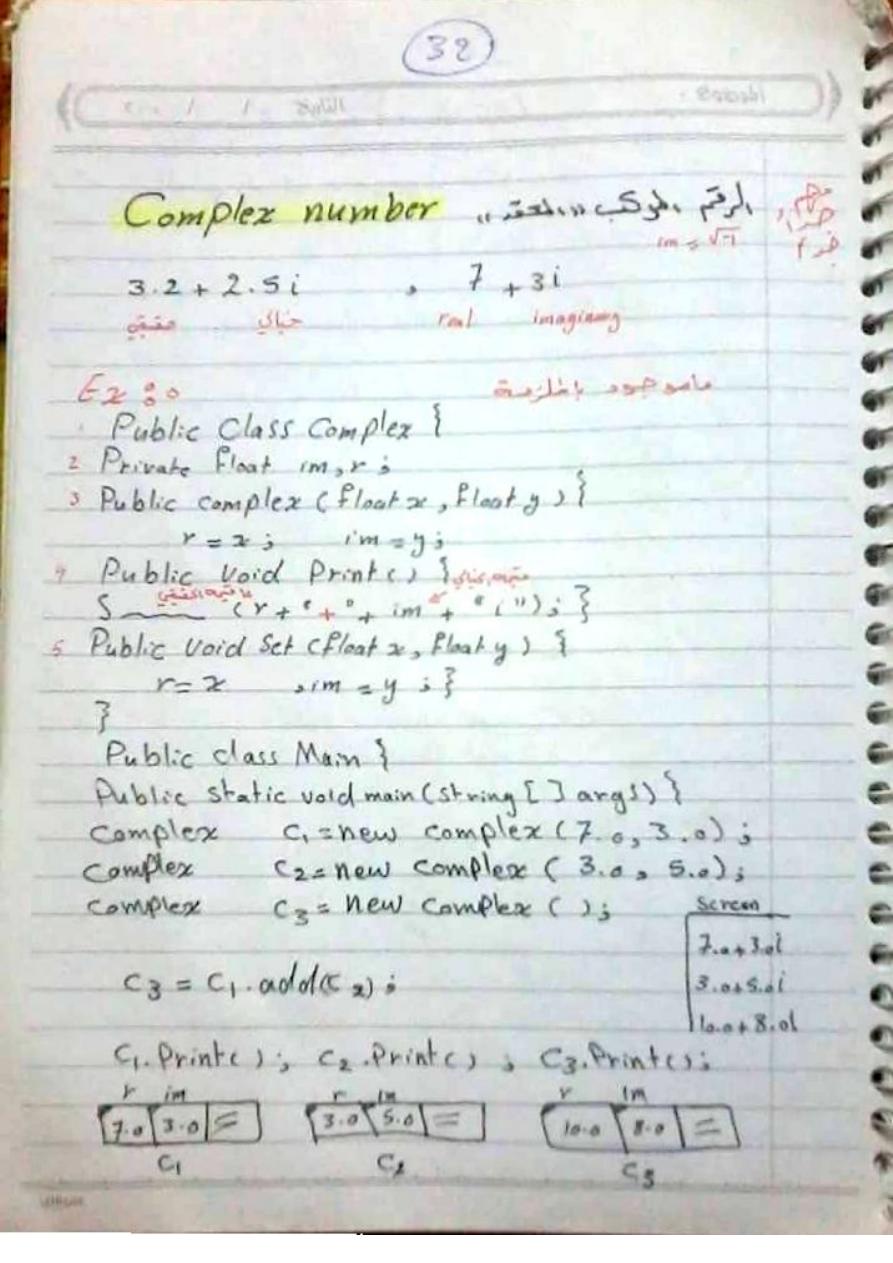 32
Complex number الرقم المركب "المعقد"
مهم جدا
im = √-1
3.2 + 2.5i , 7 + 3i
حقيقي خيالي real imaginary
Ex:
ماموجود بالملزمة
1 Public Class Complex {
2 Private float im, r;
3 Public complex (float x, float y) {
r = x; im = y;
4 Public void Print() {
S (r + "+" + im + "i"); }
5 Public void Set (float x, float y) {
r = x , im = y ; }
}
Public class Main {
Public static void main (string [] args) {
Complex C1 = new complex (7.0, 3.0);
Complex C2 = new complex (3.0, 5.0);
complex C3 = new complex ( );
Screen
7.0+3.0i
3.0+5.0i
10.0+8.0i
C3 = C1.add(C2);
C1.Print(); C2.Print() ; C3.Print();
r im r im r im
7.0 3.0 = 3.0 5.0 = 10.0 8.0 =
C1 C2 C3